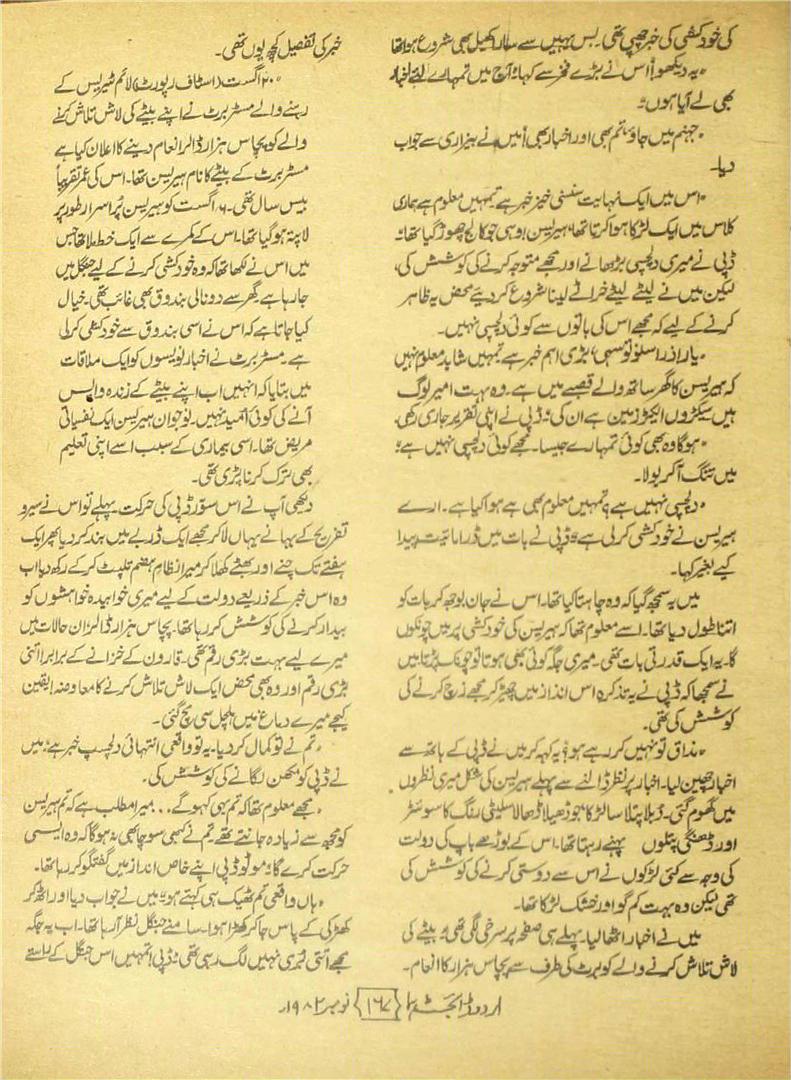 کی خودکشی کی خبر چھپی تھی۔ بس یہیں سے سارا کھیل بھی شروع ہوا تھا
"یہ دیکھو!" اس نے بڑے فخر سے کہا: "آج میں تمہارے لیے اخبار
بھی لے آیا ہوں۔"
"جہنم میں جاؤ تم بھی اور اخبار بھی!" میں نے بیزاری سے جواب
دیا۔
"اس میں ایک نہایت سنسنی خیز خبر ہے تمہیں معلوم ہے ہماری
کلاس میں ایک لڑکا ہوا کرتا تھا، ہیریسن، وہی جو کالج چھوڑ گیا تھا۔"
ڈپی نے میری دلچسپی بڑھانے اور مجھے متوجہ کرنے کی کوشش کی،
لیکن میں نے لیٹے لیٹے خراٹے لینا شروع کر دیے محض یہ ظاہر
کرنے کے لیے کہ مجھے اس کی باتوں سے کوئی دلچسپی نہیں۔
"یار! ذرا سنو تو سہی، بڑی اہم خبر ہے تمہیں شاید معلوم نہیں
کہ ہیریسن کا گھر ساتھ والے قصبے میں ہے۔ وہ بہت امیر لوگ
ہیں سیکڑوں ایکڑ زمین ہے ان کی؛" ڈپی نے اپنی تقریر جاری رکھی۔
"ہوگا وہ بھی کوئی تمہارے جیسا۔ مجھے کوئی دلچسپی نہیں ہے؛"
میں تنگ آ کر بولا۔
"دلچسپی نہیں ہے؟ تمہیں معلوم بھی ہے ہوا کیا ہے۔ ارے
ہیریسن نے خودکشی کر لی ہے" ڈپی نے بات میں ڈرامائیت پیدا
کیے بغیر کہا۔
میں یہ سمجھ گیا کہ وہ چاہتا کیا تھا۔ اس نے جان بوجھ کر بات کو
اتنا طول دیا تھا۔ اسے معلوم تھا کہ ہیریسن کی خودکشی پر میں چونکوں
گا۔ یہ ایک قدرتی بات تھی۔ میری جگہ کوئی بھی ہوتا تو چونک پڑتا میں
نے سمجھا کہ ڈپی نے یہ تذکرہ اس انداز میں چھیڑ کر مجھے زچ کرنے کی
کوشش کی تھی۔
"مذاق تو نہیں کر رہے ہو؟" یہ کہہ کر میں نے ڈپی کے ہاتھ سے
اخبار چھین لیا۔ اخبار پر نظر ڈالنے سے پہلے ہیریسن کی شکل میری نظروں
میں گھوم گئی۔ دُبلا پتلا سا لڑکا جو ڈھیلا ڈھالا سلیٹی رنگ کا سوئٹر
اور پتلون پہنے رہتا تھا۔ اس کے بوڑھے باپ کی دولت
کی وجہ سے کئی لڑکوں نے اس سے دوستی کرنے کی کوشش کی
تھی لیکن وہ بہت کم گو اور خشک لڑکا تھا۔
میں نے اخبار اٹھا لیا۔ پہلے ہی صفحہ پر سرخی لگی تھی؛ "بیٹے کی
لاش تلاش کرنے والے کو برٹ کی طرف سے پچاس ہزار کا انعام۔
خبر کی تفصیل کچھ یوں تھی۔
"۲۰ اگست (اسٹاف رپورٹ) لائم ٹیریس کے
رہنے والے مسٹر برٹ نے اپنے بیٹے کی لاش تلاش کرنے
والے کو پچاس ہزار ڈالر انعام دینے کا اعلان کیا ہے
مسٹر برٹ کے بیٹے کا نام ہیریسن تھا۔ اس کی عمر تقریباً
بیس سال تھی۔ ۶ اگست کو ہیریسن پُراسرار طور پر
لاپتہ ہو گیا تھا۔ اس کے کمرے سے ایک خط ملا تھا جس
میں اس نے لکھا تھا کہ وہ خودکشی کرنے کے لیے جنگل میں
جا رہا ہے۔ گھر سے دو نالی بندوق بھی غائب تھی۔ خیال
کیا جاتا ہے کہ اس نے اسی بندوق سے خودکشی کر لی
ہے۔ مسٹر برٹ نے اخبار نویسوں کو ایک ملاقات
میں بتایا کہ انہیں اب اپنے بیٹے کے زندہ واپس
آنے کی کوئی امید نہیں۔ نوجوان ہیریسن ایک نفسیاتی
مریض تھا۔ اسی بیماری کے سبب اسے اپنی تعلیم
بھی ترک کرنا پڑی تھی۔
دیکھی آپ نے اس سوّر ڈپی کی حرکت۔ پہلے تو اس نے سیر و
تفریح کے بہانے یہاں لا کر مجھے ایک ڈربے میں بند کر دیا پھر ایک
ہفتے تک چنے اور بھٹے کھلا کر میرا نظامِ ہضم تلپٹ کر کے رکھ دیا اب
وہ اس خبر کے ذریعے دولت کے لیے میری خوابیدہ خواہشوں کو
بیدار کرنے کی کوشش کر رہا تھا۔ پچاس ہزار ڈالر ان حالات میں
میرے لیے بہت بڑی رقم تھی۔ قارون کے خزانے کے برابر اتنی
بڑی رقم اور وہ بھی محض ایک لاش تلاش کرنے کا معاوضہ! یقین
کیجیے میرے دماغ میں ہلچل سی مچ گئی۔
"تم نے تو کمال کر دیا۔ یہ تو واقعی انتہائی دلچسپ خبر ہے؛" میں
نے ڈپی کو مکھن لگانے کی کوشش کی۔
"مجھے معلوم تھا کہ تم یہی کہو گے... میرا مطلب ہے کہ تم ہیریسن
کو مجھ سے زیادہ جانتے تھے۔ تم نے کبھی سوچا بھی نہ ہوگا کہ وہ ایسی
حرکت کرے گا؛" موٹو ڈپی اپنے خاص انداز میں گفتگو کر رہا تھا۔
"ہاں واقعی تم ٹھیک ہی کہتے ہو" میں نے جواب دیا اور اٹھ کر
کھڑکی کے پاس جا کر کھڑا ہوا۔ سامنے جنگل نظر آ رہا تھا۔ اب یہ جگہ
مجھے اتنی بُری نہیں لگ رہی تھی؛ "ڈپی! تمہیں اس جنگل کے راستے
اردو ڈائجسٹ {۱۶۷} نومبر ۱۹۸۲ء